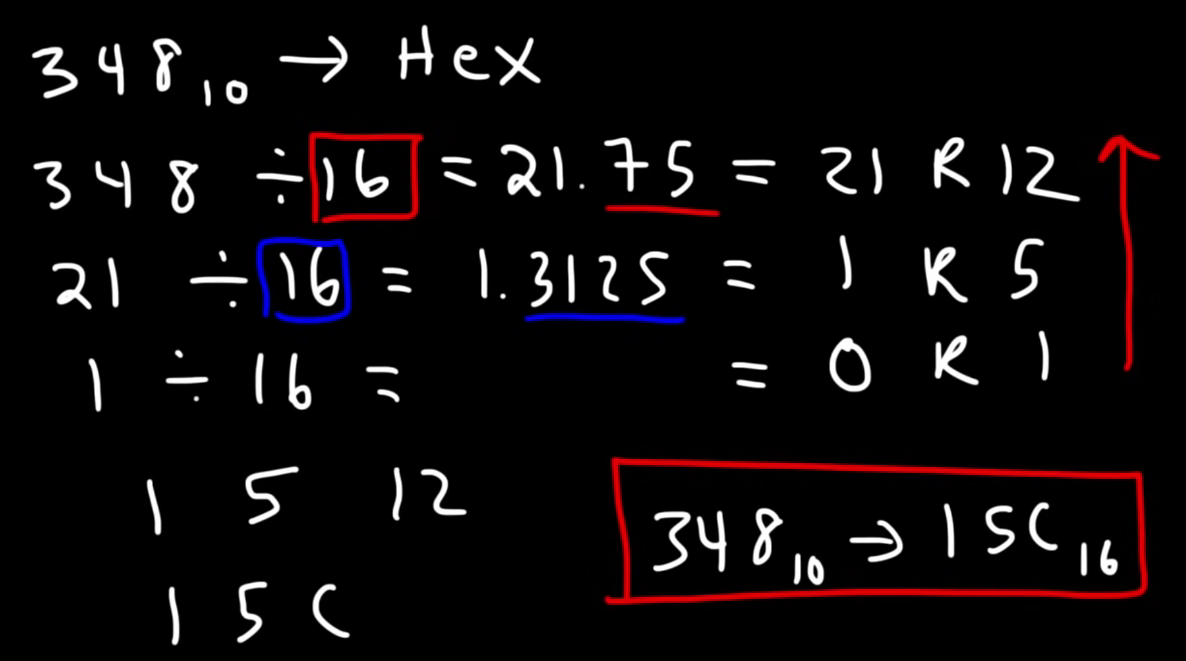 348₁₀ → Hex
348 ÷ 16 = 21.75 = 21 R 12
21 ÷ 16 = 1.3125 = 1 R 5
1 ÷ 16 = = 0 R 1
1 5 12
348₁₀ → 15C₁₆
1 5 C